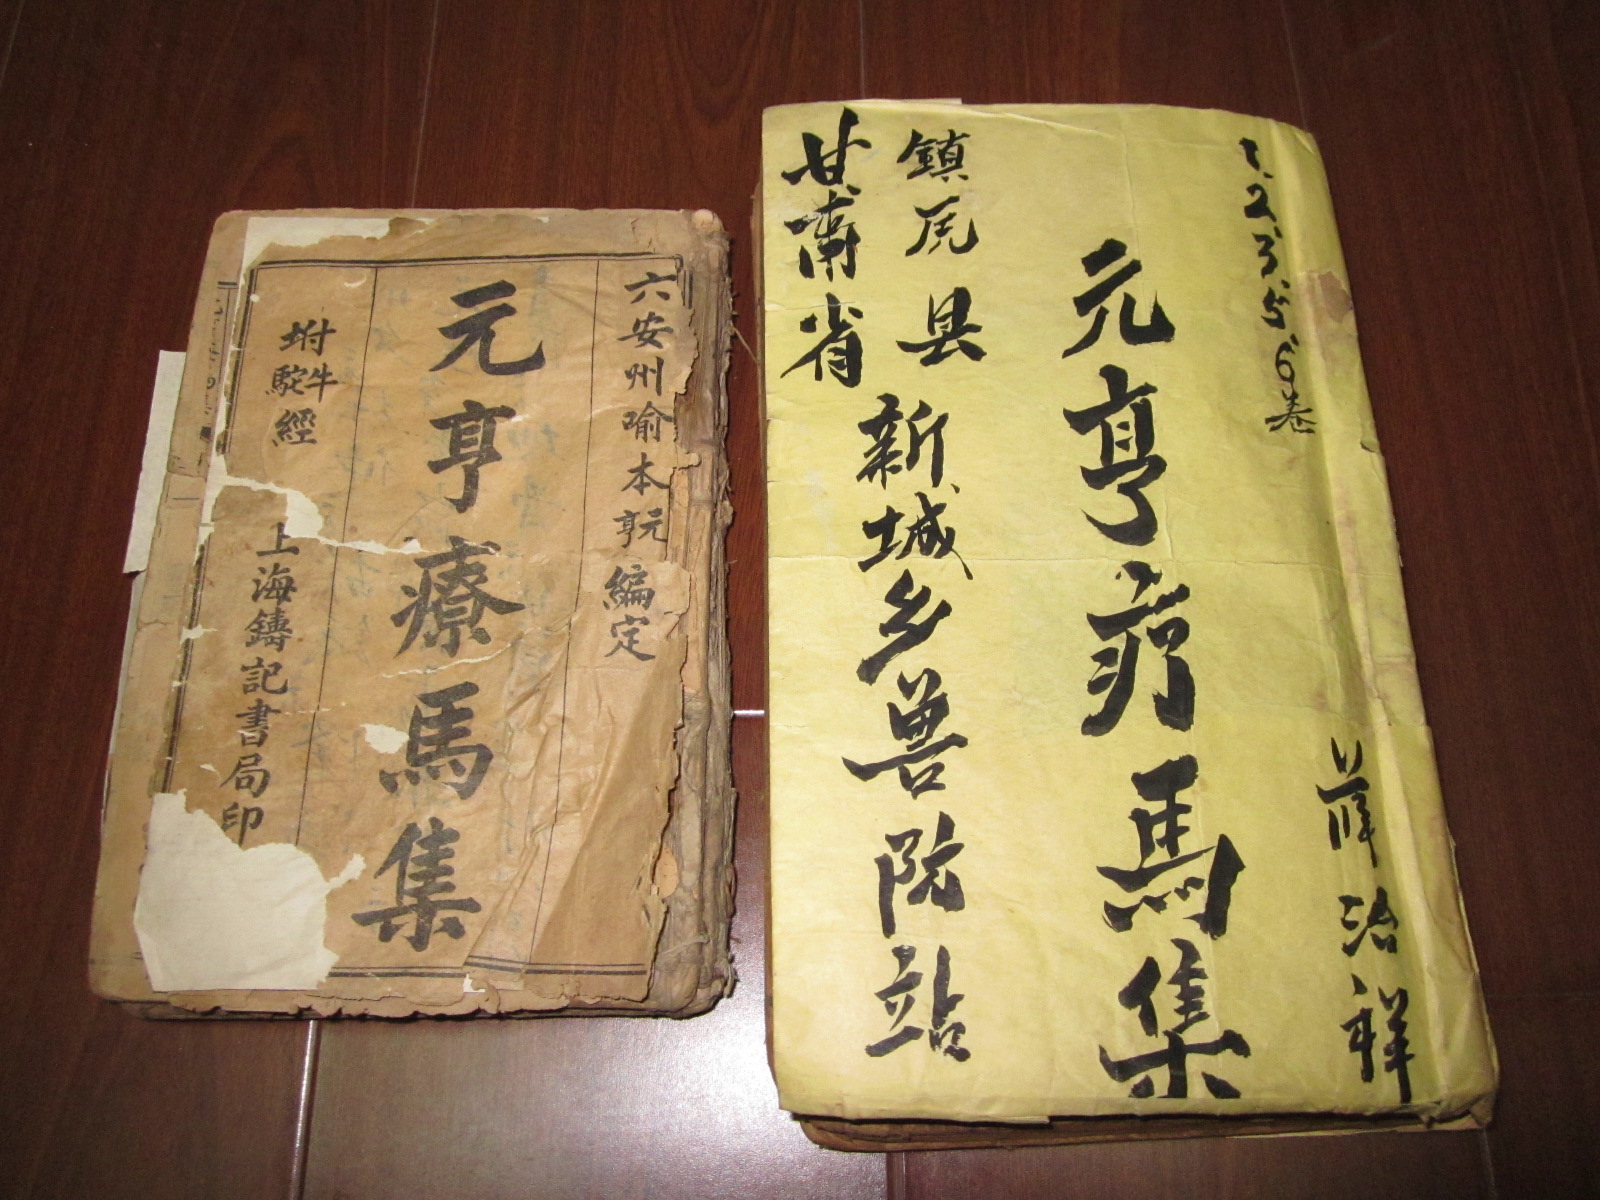 六安州喻本亨元編定
元亨療馬集
坿牛駝經
上海鑄記書局印
1.2.3.5.6卷
薛治祥
元亨疗馬集
鎮原县新城乡兽院站
甘肅省